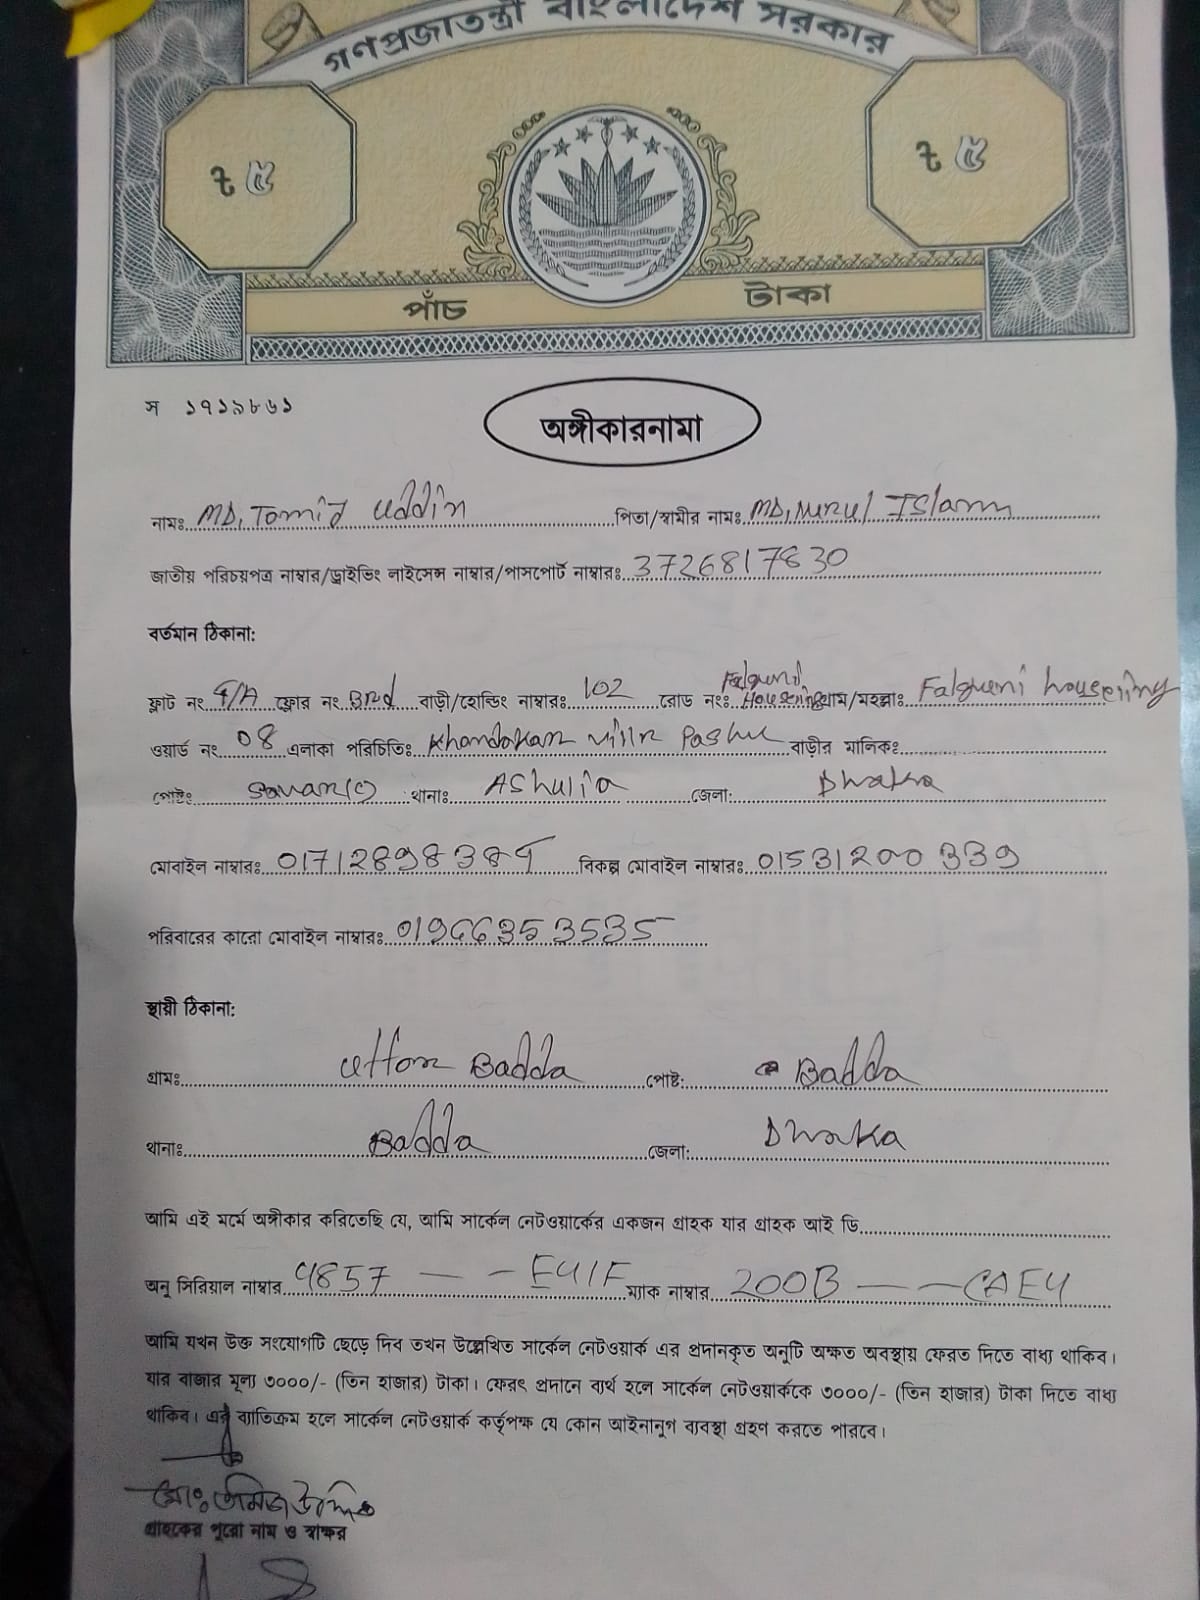 গণপ্রজাতন্ত্রী বাংলাদেশ সরকার
৳ ৫ ৳ ৫
পাঁচ টাকা
স ১৭১৯৮৬১
অঙ্গীকারনামা
নামঃ MD, Tomij Uddin পিতা/স্বামীর নামঃ MD, Nurul Islam
জাতীয় পরিচয়পত্র নাম্বার/ড্রাইভিং লাইসেন্স নাম্বার/পাসপোর্ট নাম্বারঃ 3726817830
বর্তমান ঠিকানা:
ফ্লাট নং 4/A ফ্লোর নং 3rd বাড়ী/হোল্ডিং নাম্বারঃ 102 রোড নংঃ Falguni Housing গ্রাম/মহল্লাঃ Falguni housing
ওয়ার্ড নং 08 এলাকা পরিচিতিঃ Khandakar বাড়ীর মালিকঃ
পোষ্টঃ Savar(C) থানাঃ Ashulia জেলা: Dhaka
মোবাইল নাম্বারঃ 01712898384 বিকল্প মোবাইল নাম্বারঃ 01531200339
পরিবারের কারো মোবাইল নাম্বারঃ 01966353535
স্থায়ী ঠিকানা:
গ্রামঃ Uttor Badda পোষ্ট: Badda
থানাঃ Badda জেলা: Dhaka
আমি এই মর্মে অঙ্গীকার করিতেছি যে, আমি সার্কেল নেটওয়ার্কের একজন গ্রাহক যার গ্রাহক আই ডি
অনু সিরিয়াল নাম্বার 4857 — - E41F ম্যাক নাম্বার 200B — — CAE4
আমি যখন উক্ত সংযোগটি ছেড়ে দিব তখন উল্লেখিত সার্কেল নেটওয়ার্ক এর প্রদানকৃত অনুটি অক্ষত অবস্থায় ফেরত দিতে বাধ্য থাকিব।
যার বাজার মূল্য ৩০০০/- (তিন হাজার) টাকা। ফেরৎ প্রদানে ব্যর্থ হলে সার্কেল নেটওয়ার্ককে ৩০০০/- (তিন হাজার) টাকা দিতে বাধ্য
থাকিব। এর ব্যাতিক্রম হলে সার্কেল নেটওয়ার্ক কর্তৃপক্ষ যে কোন আইনানুগ ব্যবস্থা গ্রহণ করতে পারবে।
মোঃ তমিজ উদ্দিন
গ্রাহকের পুরো নাম ও স্বাক্ষর